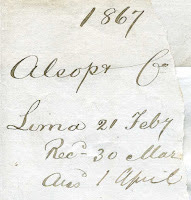 1867
Alsop & Co
Lima 21 Feby
Recd 30 Mar
Ans 1 April